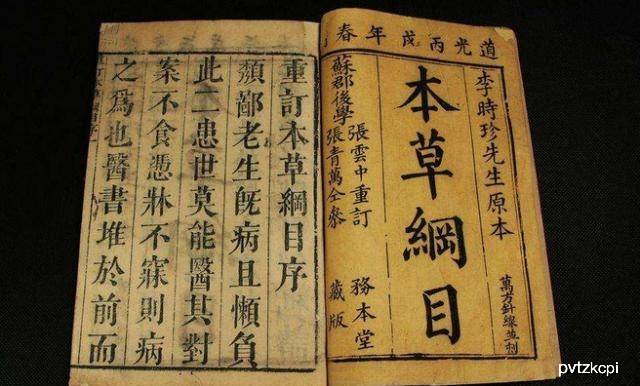 道光丙戌年春
李時珍先生原本
萬方針線並刊
本草綱目
張雲中重訂
蘇郡後學
張青萬仝參
務本堂
藏版
重訂本草綱目序
頽鄙老生旣病且懶負
此二患世莫能醫其對
案不食憑牀不寐則病
之爲也醫書堆於前而
pvtzkcpi